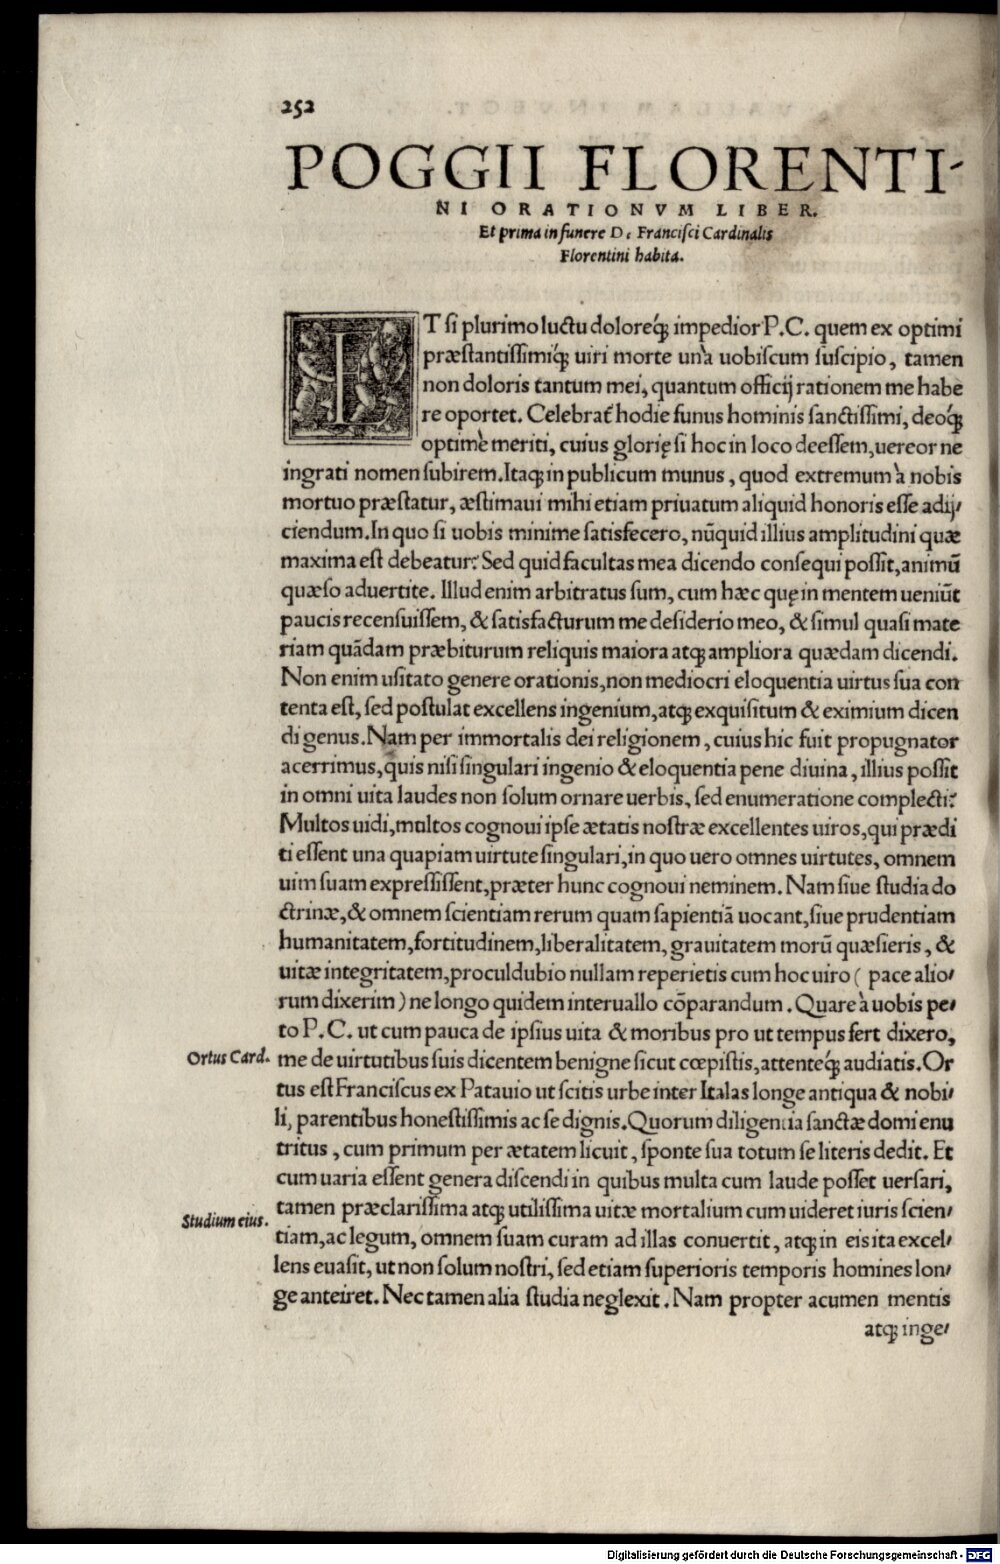 252
POGGII FLORENTI-
NI ORATIONVM LIBER.
Et prima in funere D. Francisci Cardinalis
Florentini habita.
ET si plurimo luctu doloreq́; impedior P.C. quem ex optimi
præstantissimiq́; uiri morte unà uobiscum suscipio, tamen
non doloris tantum mei, quantum officij rationem me habe
re oportet. Celebrat̃ hodie funus hominis sanctissimi, deoq́;
optimè meriti, cuius glorię si hoc in loco deessem, uereor ne
ingrati nomen subirem. Itaq; in publicum munus, quod extremum à nobis
mortuo præstatur, æstimaui mihi etiam priuatum aliquid honoris esse adij-
ciendum. In quo si uobis minime satisfecero, nũquid illius amplitudini quæ
maxima est debeatur? Sed quid facultas mea dicendo consequi possit, animũ
quæso aduertite. Illud enim arbitratus sum, cum hæc quę in mentem ueniũt
paucis recensuissem, & satisfacturum me desiderio meo, & simul quasi mate
riam quãdam præbiturum reliquis maiora atq; ampliora quædam dicendi.
Non enim usitato genere orationis, non mediocri eloquentia uirtus sua con
tenta est, sed postulat excellens ingenium, atq; exquisitum & eximium dicen
di genus. Nam per immortalis dei religionem, cuius hic fuit propugnator
acerrimus, quis nisi singulari ingenio & eloquentia pene diuina, illius possit
in omni uita laudes non solum ornare uerbis, sed enumeratione complecti?
Multos uidi, multos cognoui ipse ætatis nostræ excellentes uiros, qui prædi
ti essent una quapiam uirtute singulari, in quo uero omnes uirtutes, omnem
uim suam expressissent, præter hunc cognoui neminem. Nam siue studia do
ctrinæ, & omnem scientiam rerum quam sapientiã uocant, siue prudentiam
humanitatem, fortitudinem, liberalitatem, grauitatem morũ quæsieris, &
uitæ integritatem, proculdubio nullam reperietis cum hoc uiro (pace alio-
rum dixerim) ne longo quidem interuallo cõparandum. Quare à uobis pe-
to P.C. ut cum pauca de ipsius uita & moribus pro ut tempus fert dixero,
Ortus Card.
me de uirtutibus suis dicentem benigne sicut cœpistis, attenteq́; audiatis. Or
tus est Franciscus ex Patauio ut scitis urbe inter Italas longe antiqua & nobi-
li, parentibus honestissimis ac se dignis. Quorum diligentia sanctæ domi enu
tritus, cum primum per ætatem licuit, sponte sua totum se literis dedit. Et
cum uaria essent genera discendi in quibus multa cum laude posset uersari,
Studium eius.
tamen præclarissima atq; utilissima uitæ mortalium cum uideret iuris scien-
tiam, ac legum, omnem suam curam ad illas conuertit, atq; in eis ita excel-
lens euasit, ut non solum nostri, sed etiam superioris temporis homines lon-
ge anteiret. Nec tamen alia studia neglexit. Nam propter acumen mentis
atq; inge-
Digitalisierung gefördert durch die Deutsche Forschungsgemeinschaft - DFG